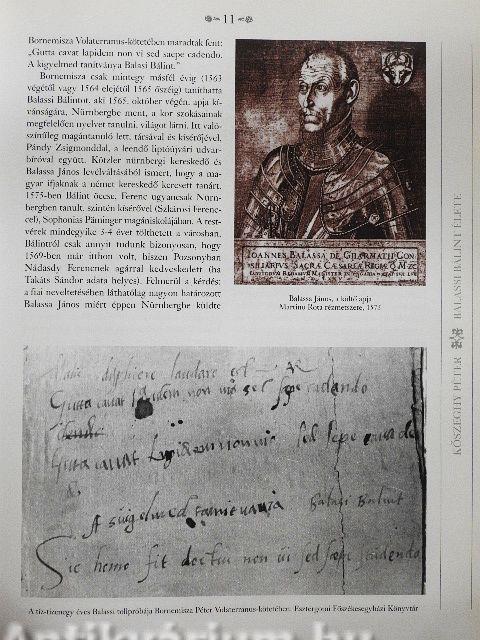 11
Bornemisza Volaterranus-kötetében maradtak fent:
„Gutta cavat lapidem non vi sed saepe cadendo.
A kigyelmed tanítványa Balasi Bálint.”
Bornemisza csak mintegy másfél évig (1563
végétől vagy 1564 elejétől 1565 őszéig) taníthatta
Balassi Bálintot, aki 1565. október végén, apja kí-
vánságára, Nürnbergbe ment, a kor szokásainak
megfelelően nyelvet tanulni, világot látni. Itt való-
színűleg magántanuló lett, társával és kísérőjével,
Pándy Zsigmonddal, a leendő liptóújvári udvar-
bíróval együtt. Kötzler nürnbergi kereskedő és
Balassa János levélváltásából ismert, hogy a ma-
gyar ifjaknak a német kereskedő keresett tanárt.
1575-ben Bálint öccse, Ferenc ugyancsak Nürn-
bergben tanult, szintén kísérővel (Szkárosi Ferenc-
cel), Sophonias Päminger magániskolájában. A test-
vérek mindegyike 3-4 évet tölthetett a városban.
Bálintról csak annyit tudunk bizonyosan, hogy
1569-ben már itthon volt, hiszen Pozsonyban
Nádasdy Ferencnek agárral kedveskedett (ha
Takáts Sándor adata helyes). Felmerül a kérdés:
a fiai neveltetésében láthatólag nagyon határozott
Balassa János miért éppen Nürnbergbe küldte
IOANNES BALASSA DE GHARMATH CON
SILIARIVS SACRÆ CÆSARIÆ REGIÆ
Balassa János, a költő apja
Martino Rota rézmetszete, 1575
KŐSZEGHY PÉTER BALASSI BÁLINT ÉLETE
laudare
Gutta cavat lapidem non vi sed sepe cadendo
Gutta cavat sed sepe
A kigelmed tanituania Balasi Balint
Sic homo fit doctus non vi sed sepe studendo
A tíz-tizenegy éves Balassi tollpróbája Bornemisza Péter Volaterranus-kötetében. Esztergomi Főszékesegyházi Könyvtár
Antikvárium.hu